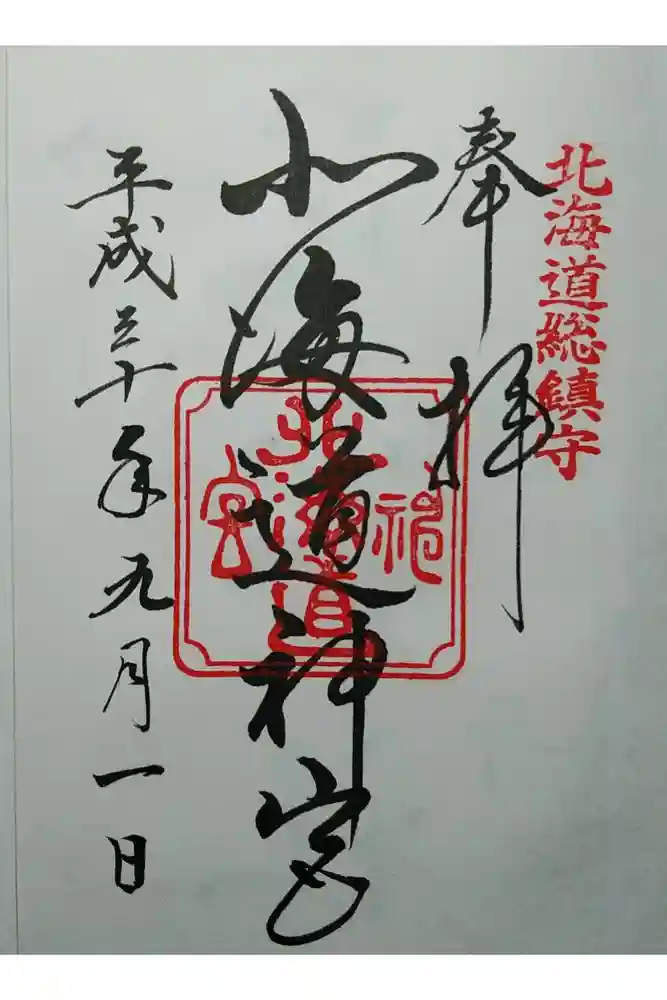 北海道總鎮守
奉拝
北海道神宮
北海道神宮
平成三十年九月一日